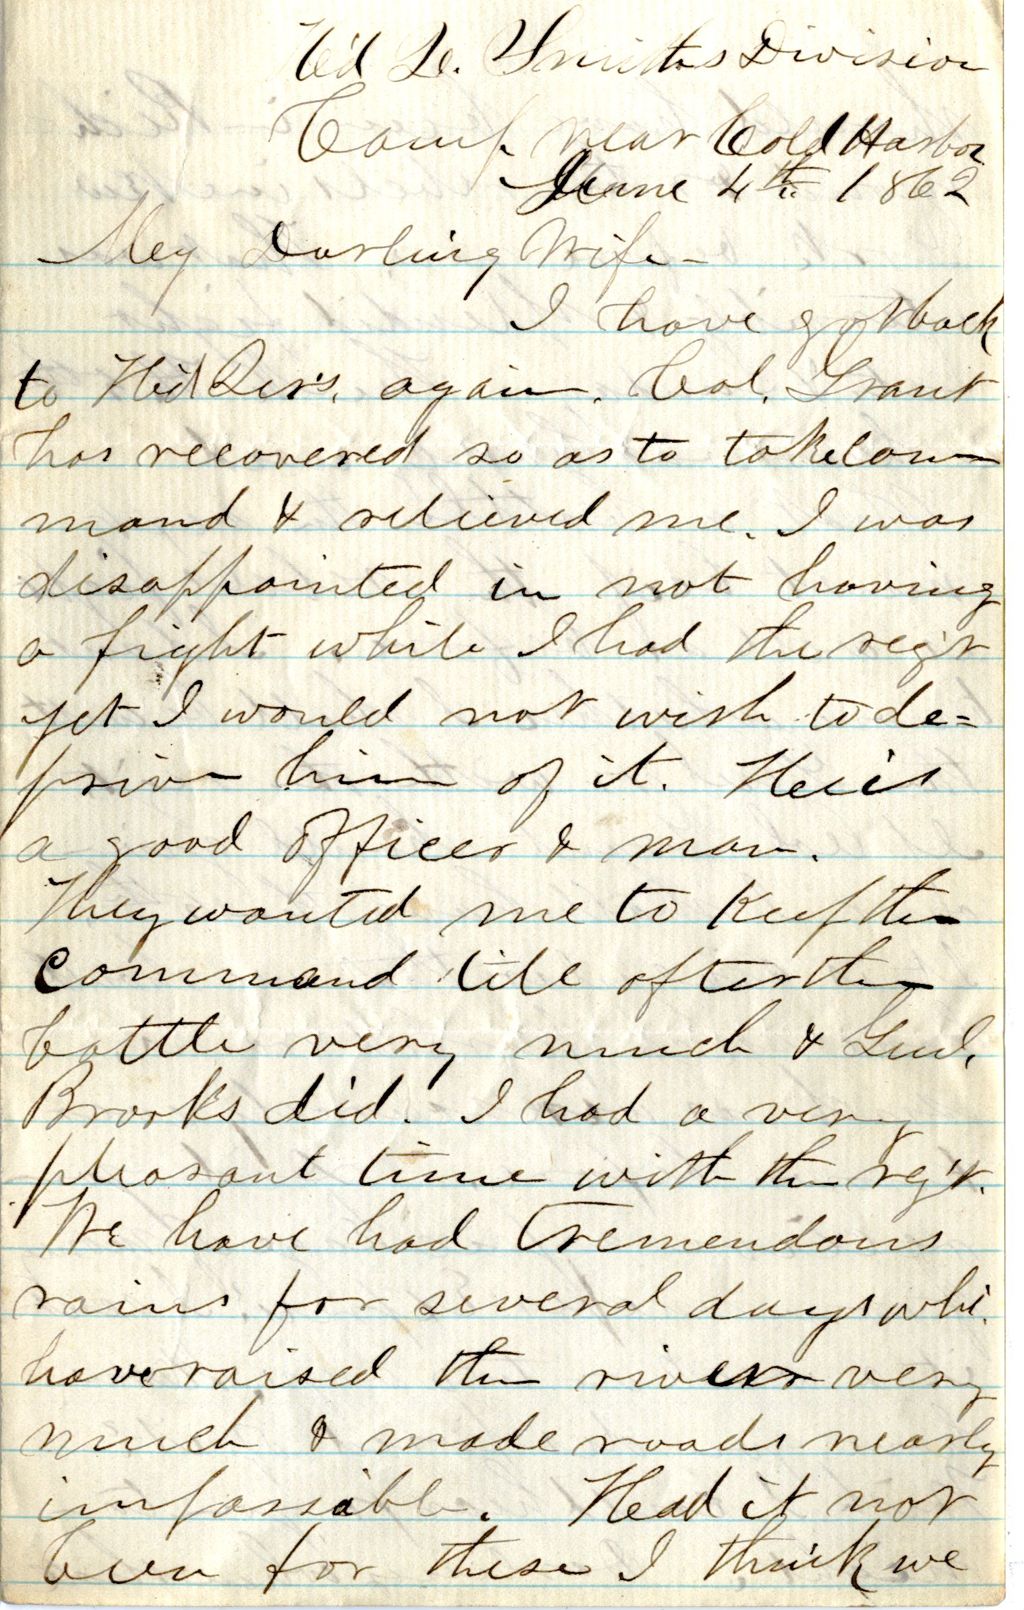 H'd Qr. Smiths Division
Camp near Cold Harbor
June 4th 1862
My Darling Wife-
I have got back
to H'd Qrs. again. Col. Grant
has recovered so as to take com
mand & relieved me. I was
disappointed in not having
a fight while I had the reg't
yet I would not wish to de=
prive him of it. He is
a good officer & man.
They wanted me to keep the
command till after the
battle very much & Genl.
Brooks did. I had a very
pleasant time with the reg't.
We have had tremendous
rains for several days whi.
have raised the rivers very
much & made roads nearly
impassible. Had it not
been for these I think we